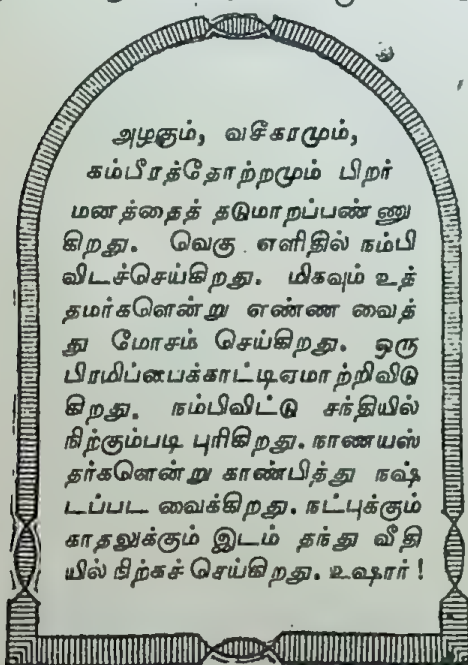 அழகும், வசீகரமும்,
கம்பீரத்தோற்றமும் பிறர்
மனத்தைத் தடுமாறப்பண்ணு
கிறது. வெகு எளிதில் நம்பி
விடச்செய்கிறது. மிகவும் உத்
தமர்களென்று எண்ண வைத்
து மோசம் செய்கிறது. ஒரு
பிரமிப்பைக்காட்டிஏமாற்றிவிடு
கிறது. நம்பிவிட்டு சந்தியில்
நிற்கும்படி புரிகிறது. நாணயஸ்
தர்களென்று காண்பித்து நஷ்
டப்பட வைக்கிறது. நட்புக்கும்
காதலுக்கும் இடம் தந்து வீதி
யில் நிற்கச் செய்கிறது. உஷார் !